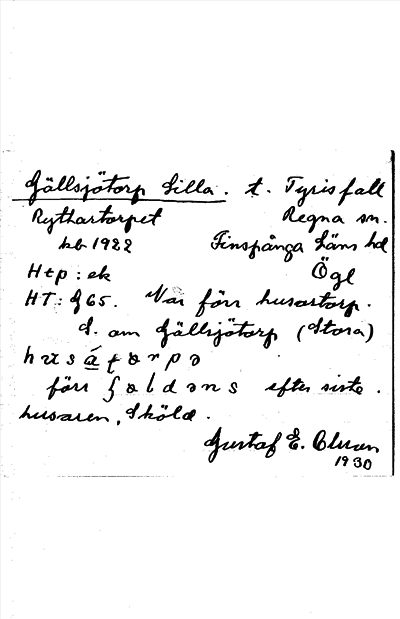 Gällsjötorp Lilla. t. Tyrisfall
Ryttartorpet Regna sn.
kb 1922 Finspånga läns hd
Htp: ek Ögl
HT: g 65. Var förr husartorp.
S. om Gällsjötorp (Stora)
förr ʃøldəns efter siste
husaren, Sköld.
Gustaf E. Olsson
1930